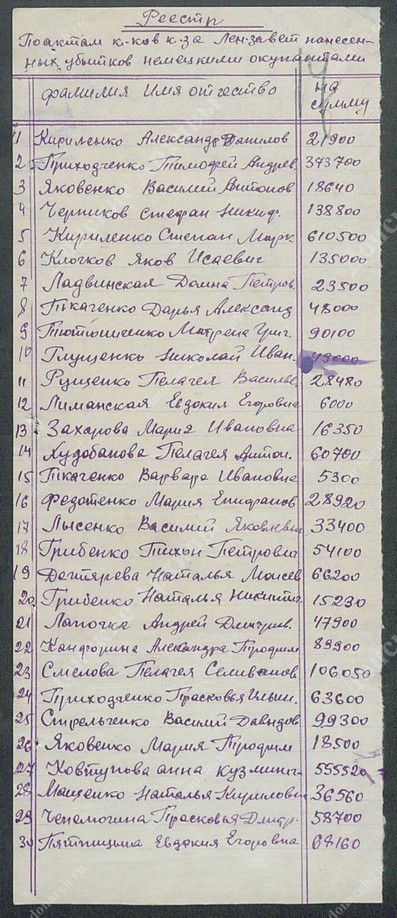 Реестр
По актам к-ков к-за Лен-завет нанесен-
ных убытков немецкими окупантами
Фамилия Имя отчество на
сумму
1 Кириленко Александр Данилов 21900
2 Приходченко Тимофей Андрев 373700
3 Яковенко Василий Антонов 18640
4 Черников Стефан Никиф. 138800
5 Кириленко Степан Марк 610500
6 Клочков Яков Исаевич 135000
7 Ладвинская Домна Петров 23500
8 Ткаченко Дарья Александ 48000
9 Тотошенко Матрена Григ. 90100
10 Глущенко Николай Иван. 49000
11 Рущенко Пелагея Василье 28480
12 Лиманская Евдокия Егоровна 6000
13 Захарова Мария Ивановна 16350
14 Худобанова Пелагея Антон. 60700
15 Ткаченко Варвара Ивановна 5300
16 Федотенко Мария Епифанов 28920
17 Лысенко Василий Яковлевич 33400
18 Грибенко Тихон Петрович 54100
19 Дегтярева Наталья Моисев 66200
20 Грибенко Наталья Никитич 15230
21 Лапочка Андрей Дмитрив. 47900
22 Александра Трофим 89900
23 Смелова Пелагея Селиванов 106050
24 Приходченко Прасковья Ильин. 63600
25 Стрельченко Василий Давыдов 99300
26 Яковенко Мария Трофим 18500
27 Ковтунова Анна Кузминг 555520
28 Мащенко Наталья Кириловн 36560
29 Чепамогина Прасковья Дмитр. 58700
30 Пятницина Евдокия Егоровна 68160